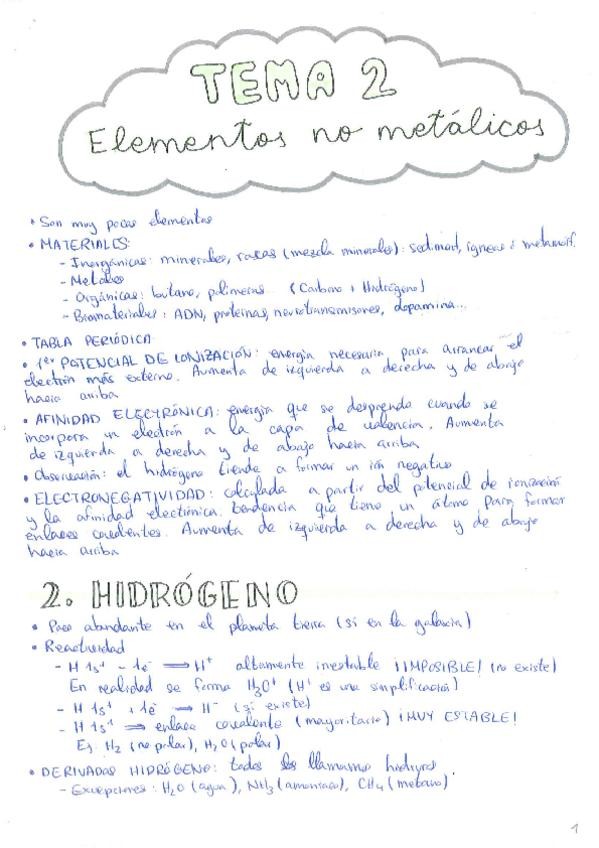 TEMA 2
Elementos no metálicos
• Son muy pocos elementos
• MATERIALES:
- Inorgánicos: minerales, rocas (mezcla minerales): sediment, ígneas i metamórf.
- Metales
- Orgánicos: butano, polímeros... (Carbono + Hidrógeno)
- Biomateriales: ADN, proteínas, neurotransmisores, dopamina...
• TABLA PERIÓDICA
• 1er POTENCIAL DE IONIZACIÓN: energía necesaria para arrancar el
electrón más externo. Aumenta de izquierda a derecha y de abajo
hacia arriba
• AFINIDAD ELECTRÓNICA: energía que se desprende cuando se
incorpora un electrón a la capa de valencia. Aumenta
de izquierda a derecha y de abajo hacia arriba
• Observación: el hidrógeno tiende a formar un ión negativo
• ELECTRONEGATIVIDAD: calculada a partir del potencial de ionización
y la afinidad electrónica. Tendencia que tiene un átomo para formar
enlaces covalentes. Aumenta de izquierda a derecha y de abajo
hacia arriba
2. HIDRÓGENO
• Poco abundante en el planeta tierra (sí en la galaxia)
• Reactividad
- H 1s¹ - 1e⁻ ⟹ H⁺ altamente inestable ¡IMPOSIBLE! (no existe)
En realidad se forma H₃O⁺ (H⁺ es una simplificación)
- H 1s¹ + 1e⁻ ⟹ H⁻ (sí existe)
- H 1s¹ ⟹ enlace covalente (mayoritario) ¡MUY ESTABLE!
Ej. H₂ (no polar), H₂O (polar)
• DERIVADOS HIDRÓGENO: todos los llamamos hidruros
- Excepciones: H₂O (agua), NH₃ (amoniaco), CH₄ (metano).
1